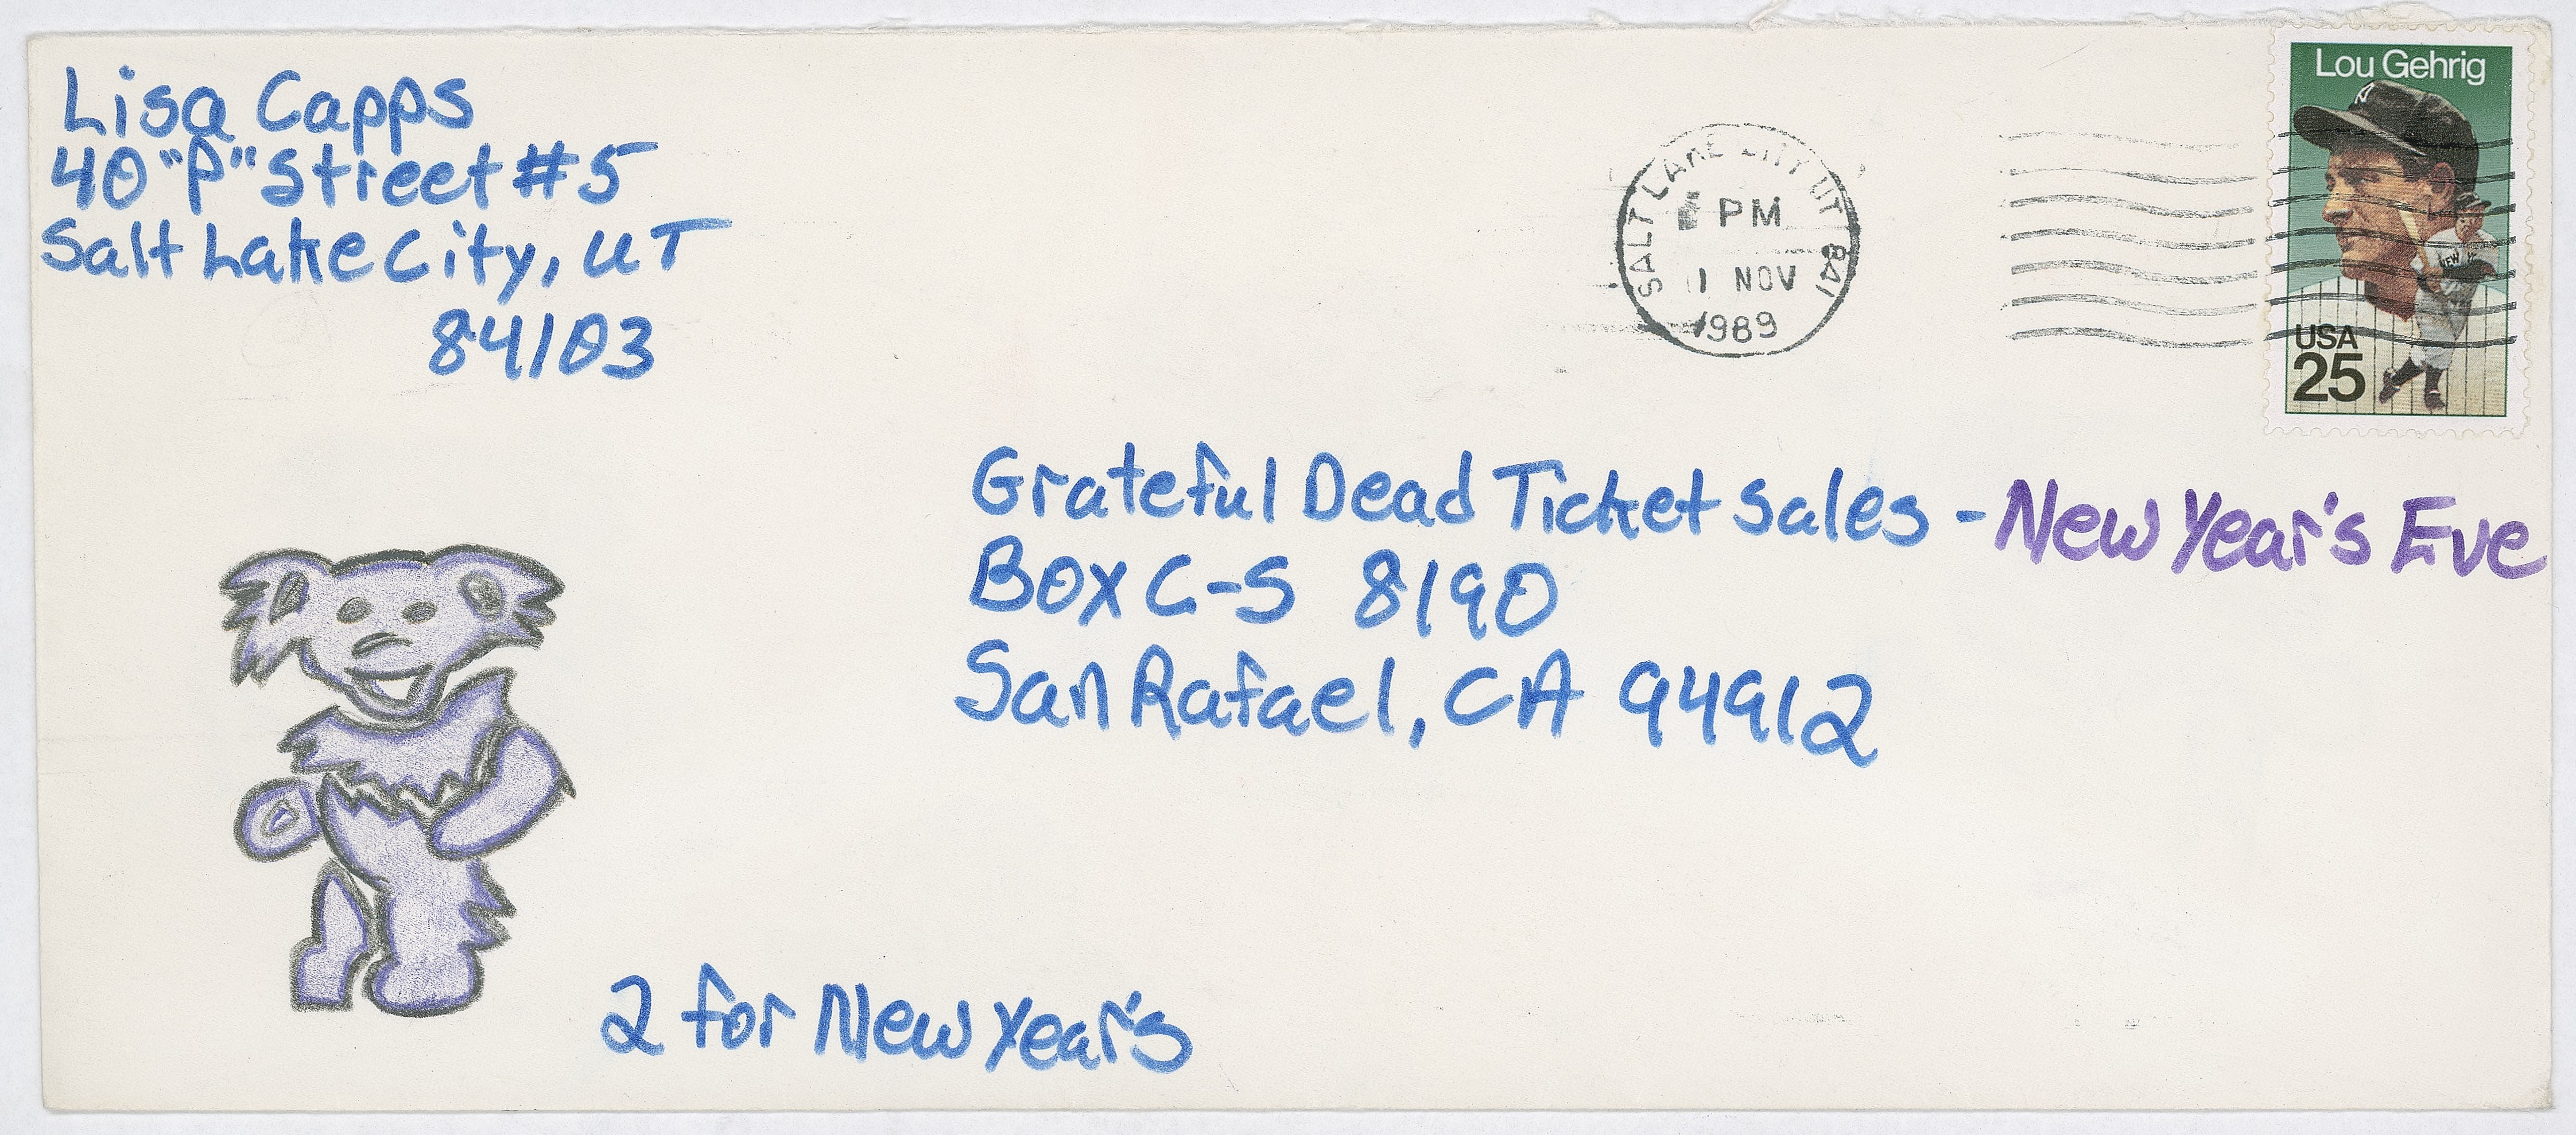 Lisa Capps
40 "P" Street #5
Salt Lake City, UT
84103
SALT LAKE CITY UT 841
PM
1 NOV
1989
Lou Gehrig
NEW Y
USA
25
Grateful Dead Ticket Sales - New Year's Eve
Box C-S 8190
San Rafael, CA 94912
2 for New Year's